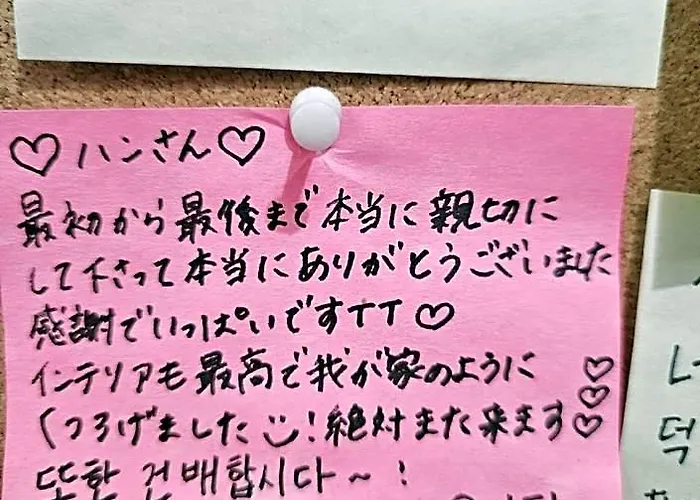 ♡ハンさん♡
最初から最後まで本当に親切に
して下さって本当にありがとうございました
感謝でいっぱいですTT♡
インテリアも最高で我が家のように♡
くつろげましたü!絶対また来ます♡♡
또한 건배합시다~!
너
덕